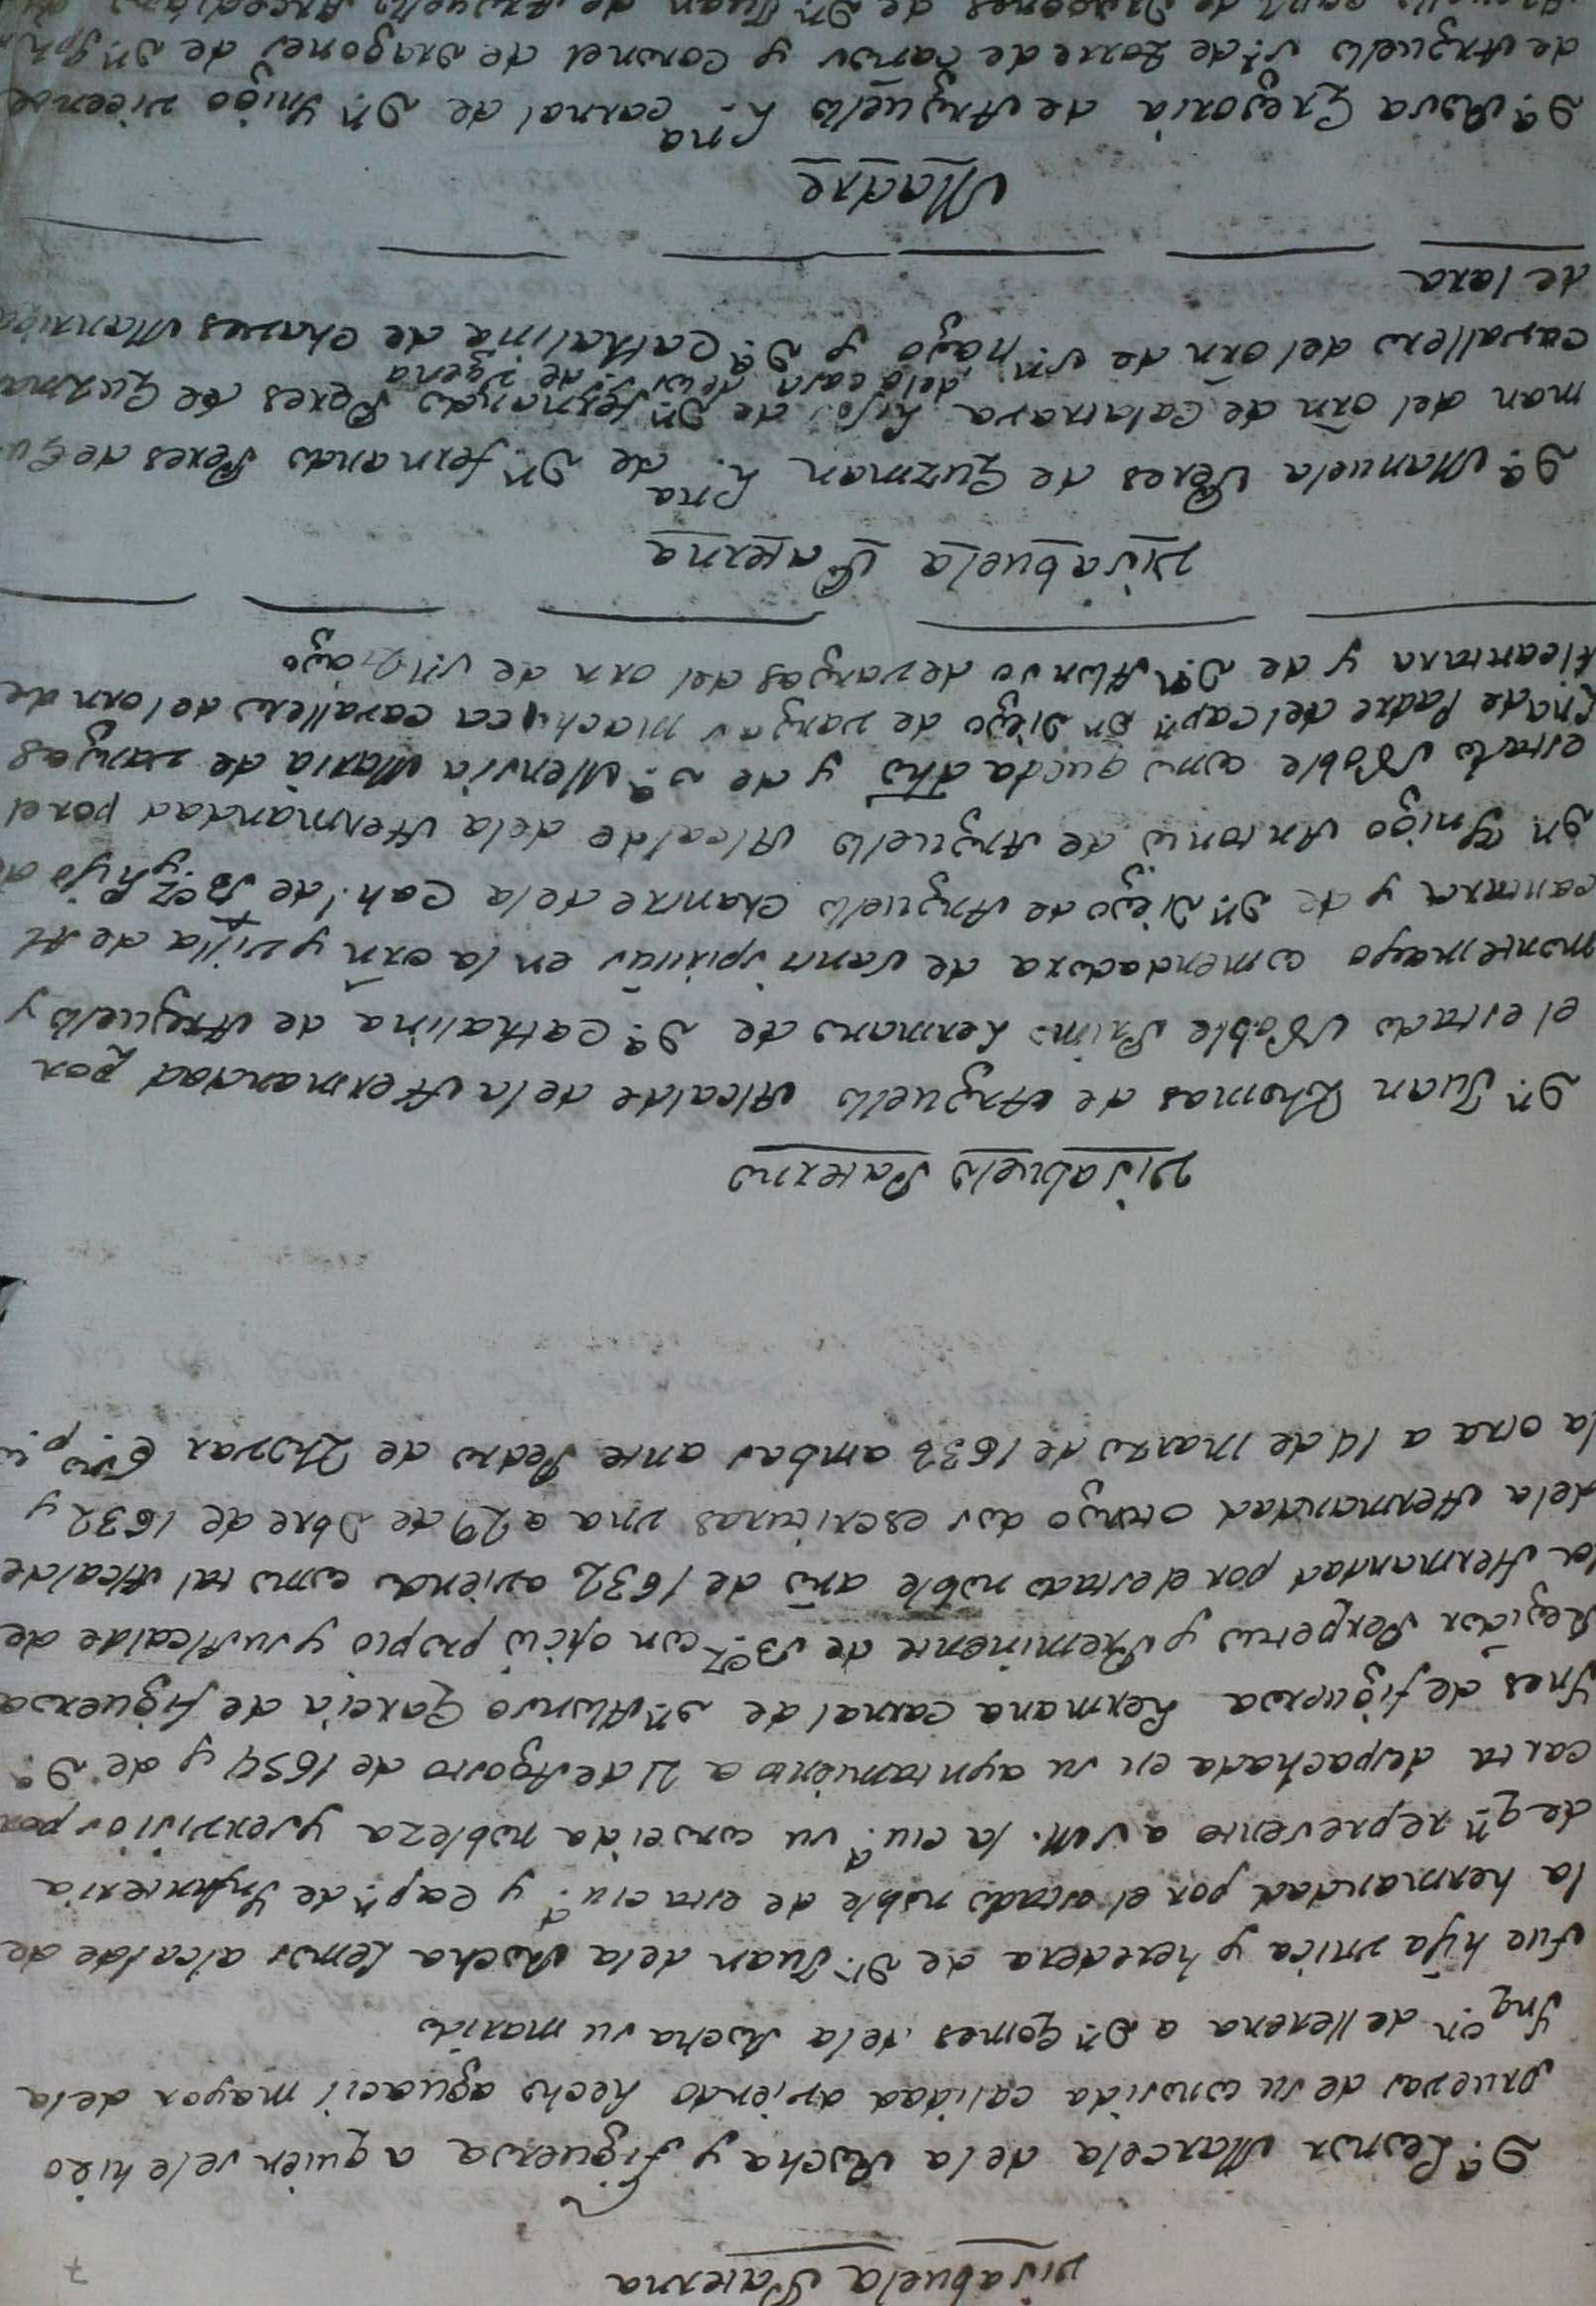 7
visabuela Paterna
D.ª Leonor Marcela de la Rocha y figueroa a quien se le hizo
pruevas de su conosida calidad aviendo hecho aguacil mayor de la
Ynq.on de llerena a Dn Gomes de la Rocha su marido
fue hija vnica y heredera de Dn. Juan de la Rocha Lemos alcalde de
la hermandad por el estado noble de esta ciu.d y Cap.n de Ynfanteria
de q.n represento a S M. la ciu.d su conocida nobleza y servisios por
carta despachada en su ayuntamiento a 21 de Agosto de 1654 y de D.ª
Ynes de figueroa hermana carnal de Dn Alonso Garcia de figueroa
Regidor Perpetuo y Preminente de Bcz con oficio propio y su Alcalde de
la Hermandad por el estado noble año de 1632 aviendo como tal Alcalde
de la Hermandad otorgo dos escrituras vna a 29 de Dbre de 1632 y
la otra a 14 de Marzo de 1633 ambas ante Pedro de Thovar Esno p.co
Visabuelo Paterno
Dn. Juan Thomas de Arguello Alcalde de la Hermandad por
el estado Noble Primo hermano de D.ª Cathalina de Arguello y
montemayo comendadora de santi spiritus en la orn y villa de Al
cantara y de Dn Diego de Arguello chantre de la Cah.l de Bcz y hijo de
Dn Ynigo Antonio de Arguello Alcalde de la Hermandad por el
estado Noble como queda dho y de D.ª Mensia Maria de vargas
hna de Padre del cap.n Dn Diego de vargas machuca cavallero del orn de
Alcantara y de Dn Alonso de vargas del orn de S.n tiago
visabuela Paterna
D.ª Manuela Peres de Guzman hna de Dn fernando Peres de Gu
man del orn de Calatrava hijos de Dn fernando Peres de Guzman
de la casa de los s.s de vgena
cavallero del orn de S.n tiago y D.ª Cathalina de chaves Manrique
de lara
Madre
D.ª Rosa Gregoria de Arguello hna carnal de Dn Ynigo vicente
de Arguello s.r de torre de caños y coronel de dragones de Dn Jph
Arguello cap.n de Dragones de Dn Juan de Arguello Arcediano